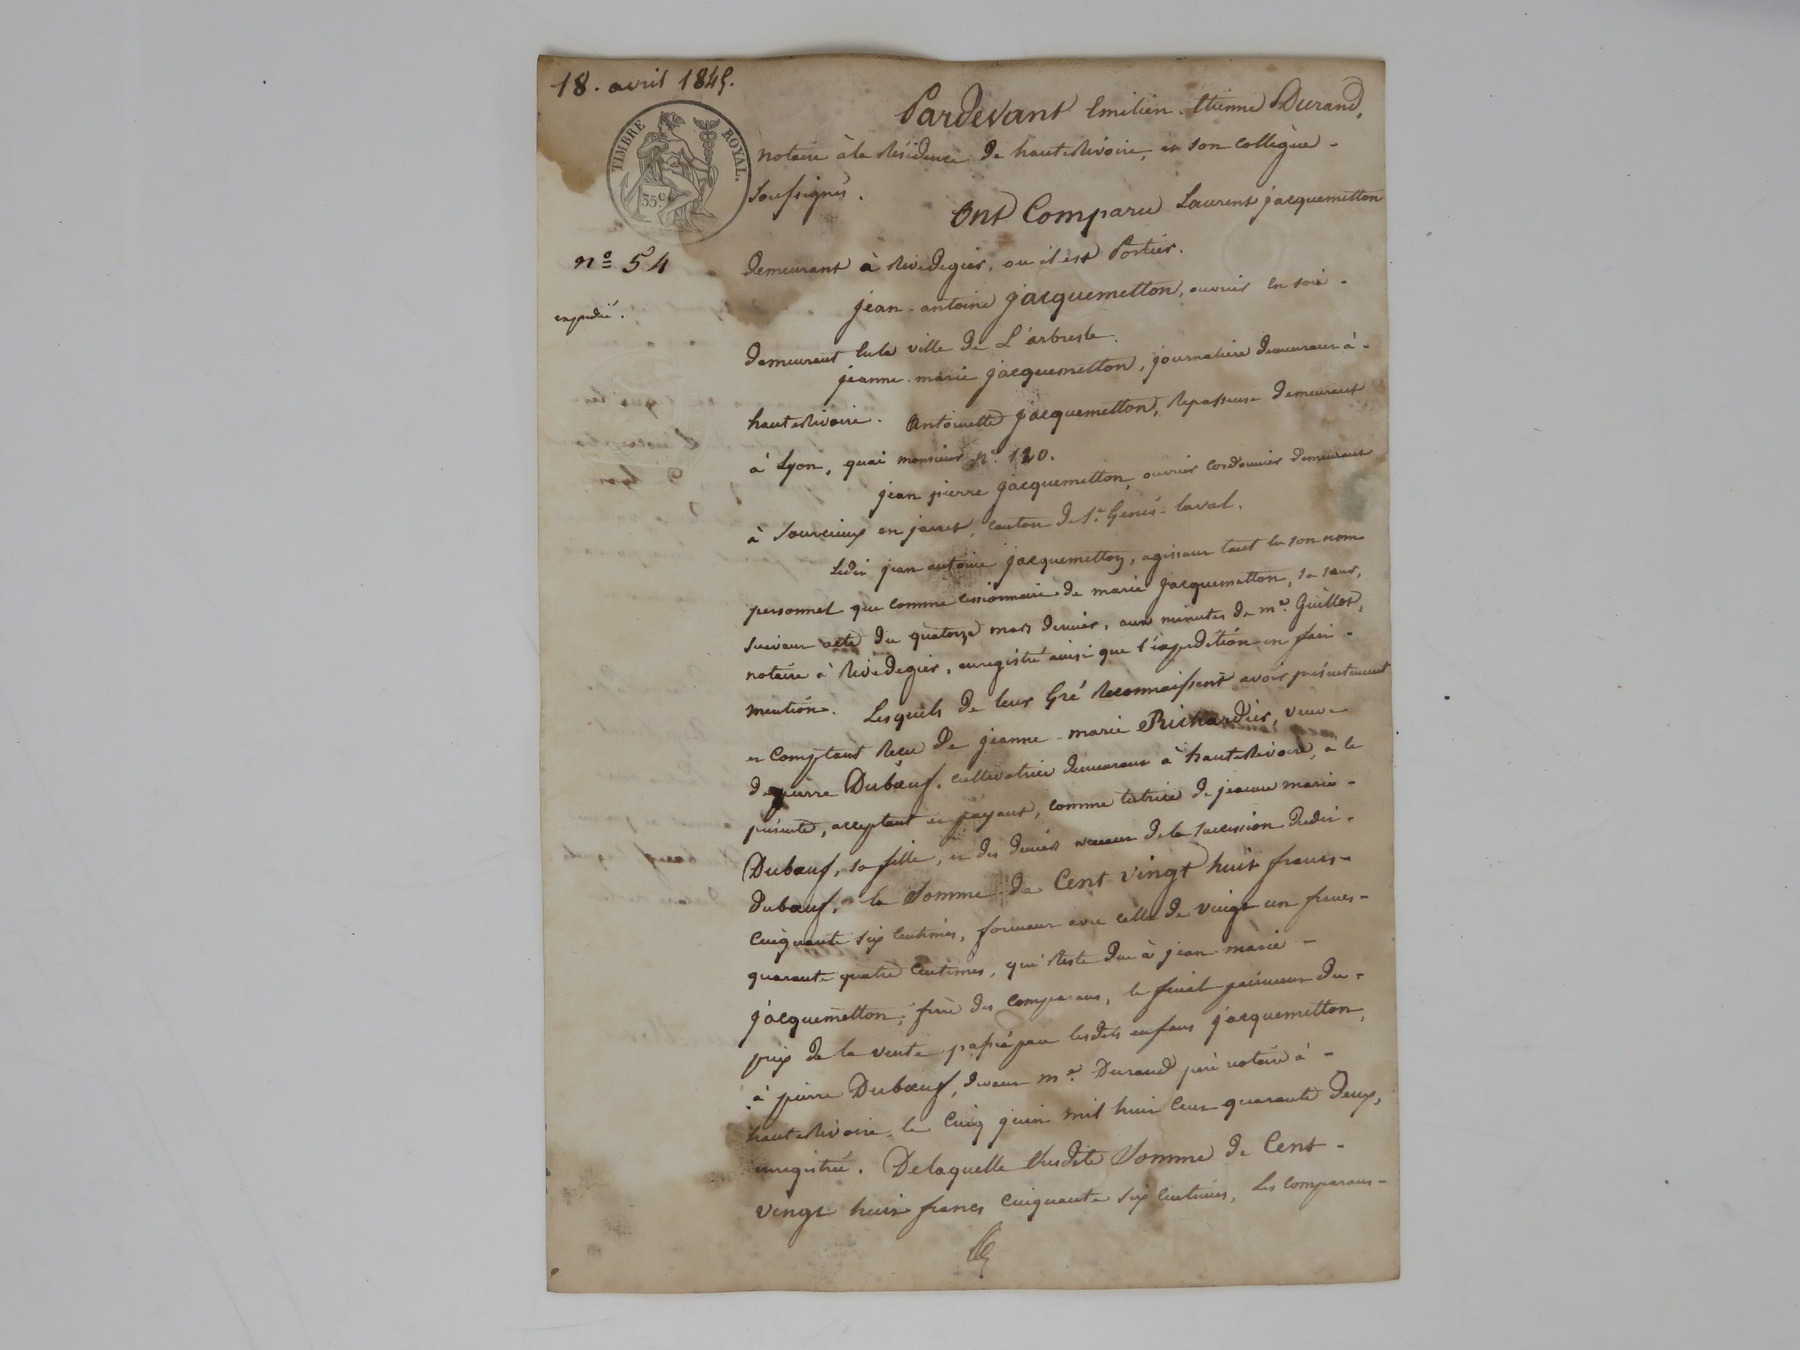 18. avril 1845.
TIMBRE ROYAL.
35c
nº 54
expédié.
Pardevant Emilien Etienne Durand,
notaire à la Résidence de hauteRivoire, et son collègue -
Soussignés.
Ont Comparu Laurent jacquemetton
demeurant à Rivedegier, ou il est Portier.
jean-antoine jacquemetton, ouvrier en soie -
demeurant en la ville de L'arbresle.
jeanne-marie jacquemetton, journalière demeurant à -
hauteRivoire. Antoinette jacquemetton, Repasseuse demeurant
à Lyon, quai monsieur nº. 120.
jean pierre jacquemetton, ouvrier cordonnier demeurant
à Sourcieux en jarret, canton de St. Genis-laval.
Ledit jean antoine jacquemetton, agissant tant en son nom
personnel que comme cessionnaire de marie jacquemetton, sa sœur,
suivant acte du quatorze mars dernier, aux minutes de me. Guillot,
notaire à Rivedegier, enregistré ainsi que l'expédition en fait -
mention. Lesquels de leur Gré Reconnaissent avoir présentement
et Comptant Reçu de jeanne-marie Richardier, veuve
de pierre Dubœuf, cultivatrice demeurant à hauteRivoire, à ce
présente, acceptant et payant, comme tutrice de jeanne marie -
Dubœuf, sa fille, et des deniers venant de la succession dudit -
dubœuf, la Somme de Cent vingt huit francs -
Cinquante six centimes, formant avec celle de vingt un francs -
quarante quatre centimes, qui Reste due à jean-marie -
jacquemetton, frère des comparans, le final paiement du -
prix de la vente passée par lesdits enfans jacquemetton,
à pierre Dubœuf, devant me. Durand père notaire à -
hauteRivoire le Cinq juin mil huit cent quarante deux,
enregistrée. Delaquelle Susdite Somme de Cent -
vingt huit francs Cinquante six centimes, Les comparans -